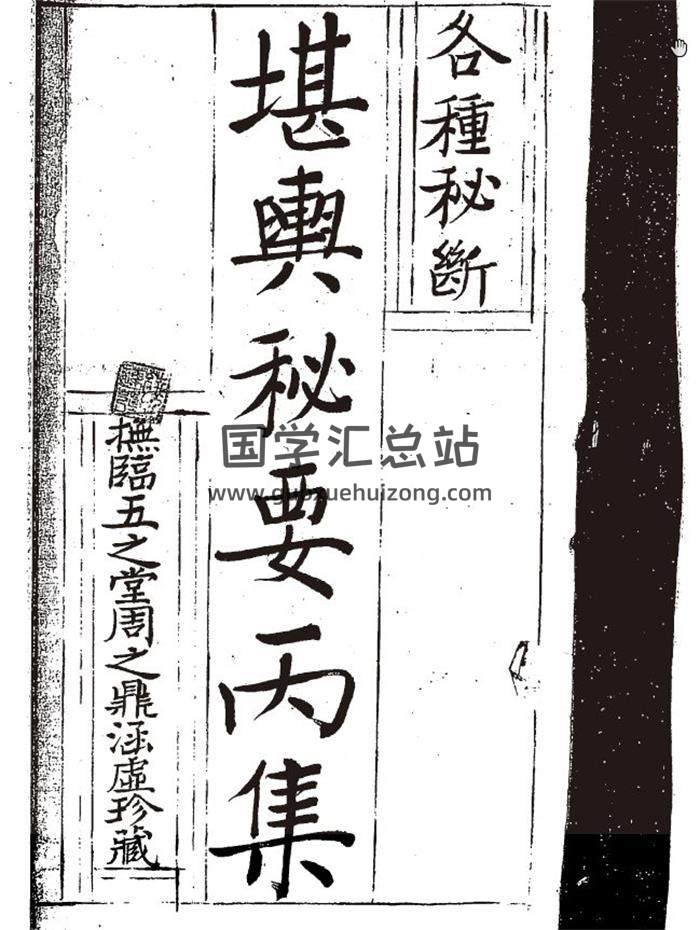 各種秘斷
堪輿秘要丙集
撫臨五之堂周之鼎涵虛珍藏
国学汇总站
www.guoxuehuizong.com